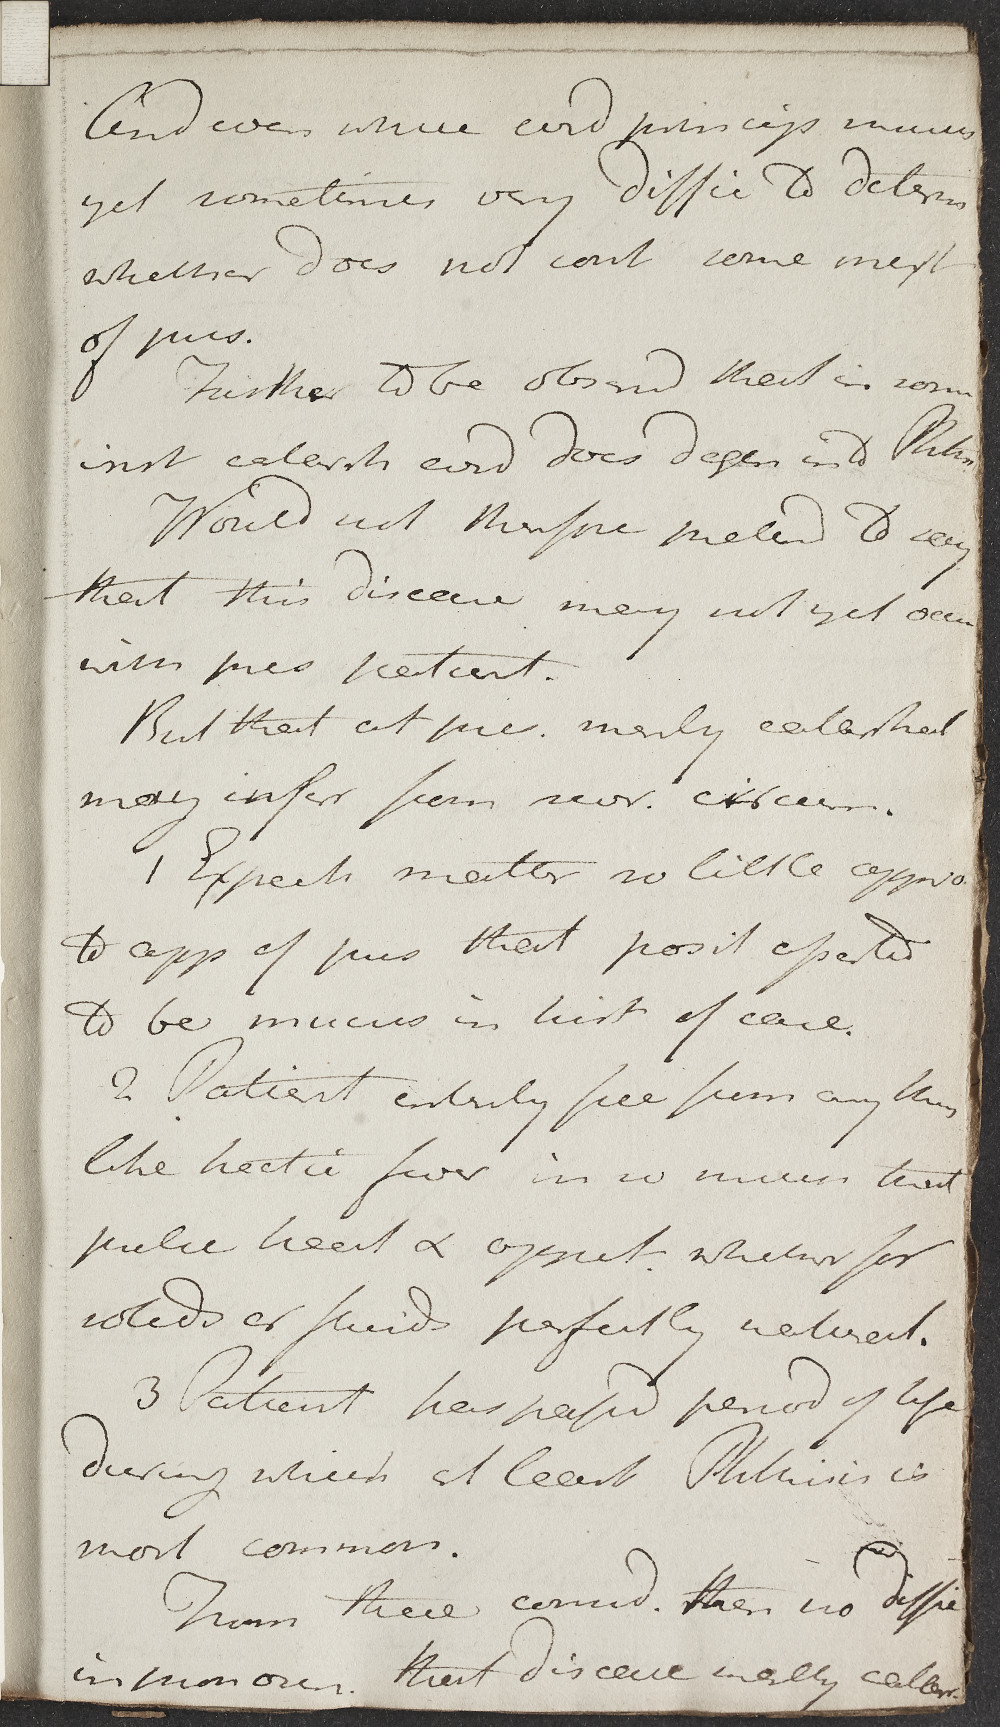 And even where evid princip mucus
yet sometimes very diffic to determ
whether does not cont some mixt
of pus.
Further to be observd that in som
inst catarrh evid does degen into Phthis
Would not therefore pretend to say
that this disease may not yet occur
with pres patient.
But that at pres. merely catarrhal
may infer from sever. circum.
1 Expect matter so little appro
to app of pus that posit asserted
to be mucus in hist of case.
2 Patient entirely free from any thing
like hectic fever in so much that
pulse heat & appet. whether for
solids or fluids perfectly natural.
3 Patient has passd period of life
during which at least Phthisis is
most common.
From these consid. then no diffic
in pronoun. that disease merely catarr.